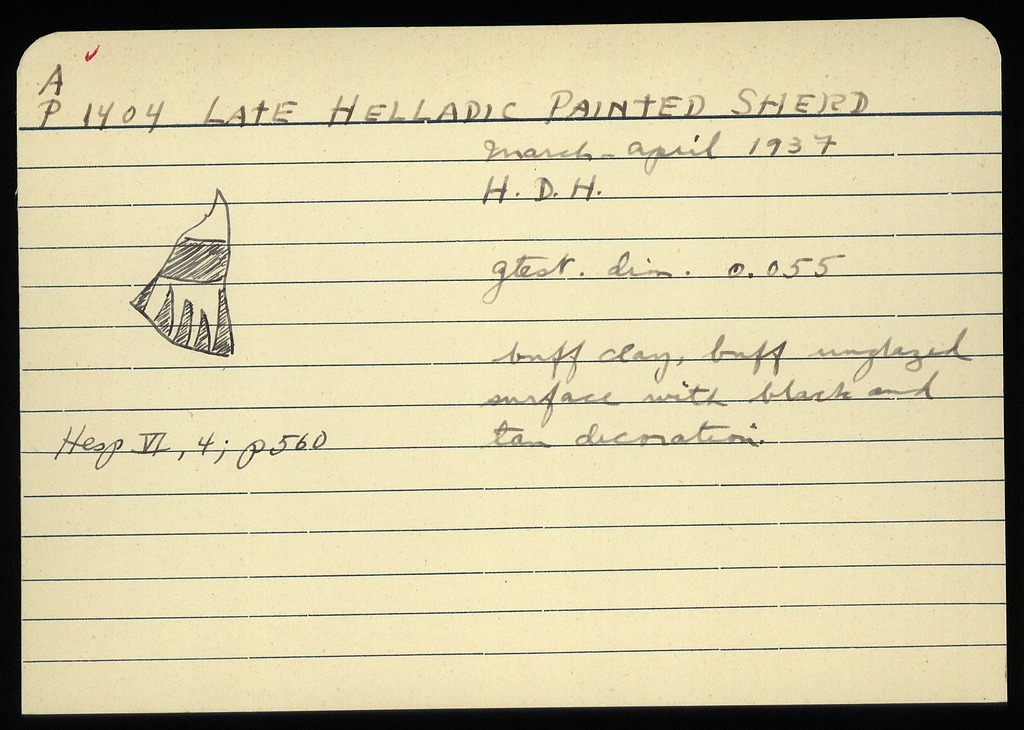 A
P 1404 LATE HELLADIC PAINTED SHERD
March-April 1937
H. D. H.
gtest. dim. 0.055
buff clay, buff unglazed
surface with black and
tan decoration.
Hesp VI, 4; p560